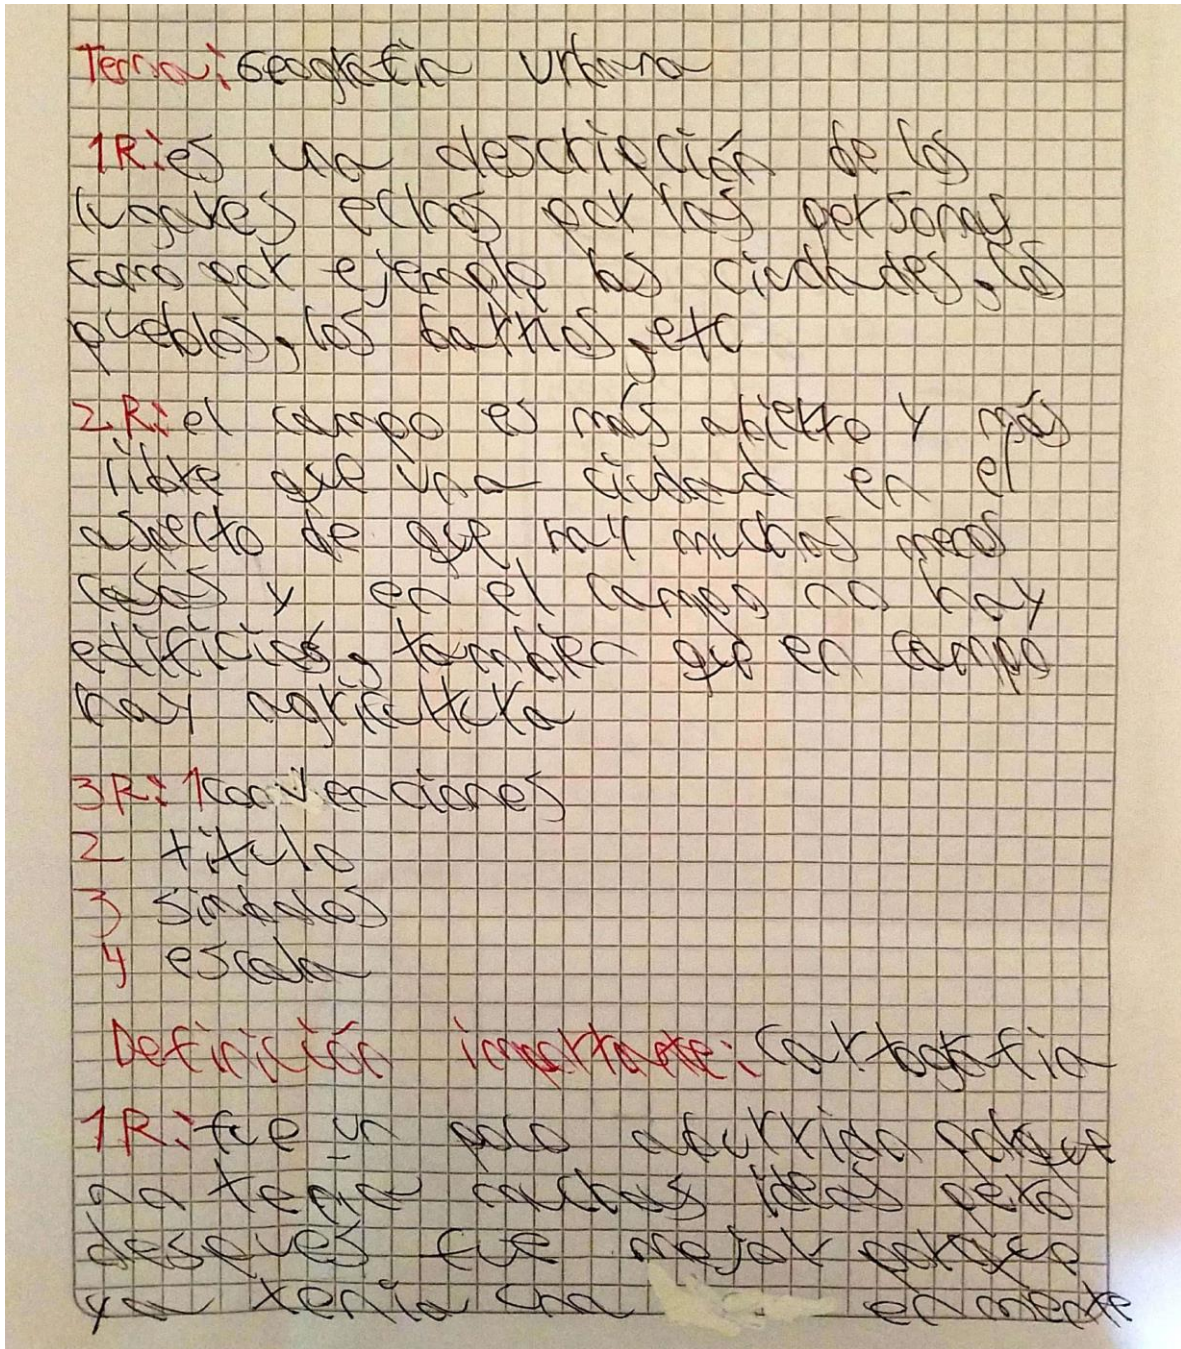 Tema: Geografia urbana
1R: es una descripción de los
lugares echos por las personas
como por ejemplo las ciudades, los
pueblos, los barrios, etc
2R: el campo es más abierto y más
libre que una ciudad en el
aspecto de que hay muchas menos
casas y en el campo no hay
edificios, tambien que en campo
hay agricultura
3R: 1 convenciones
2 titulo
3 simbolos
4 escala
Definición importante: cartografia
1R: fue un poco aburrido porque
no tenia muchas ideas pero
despues fue mejor porque
ya tenia una en mente